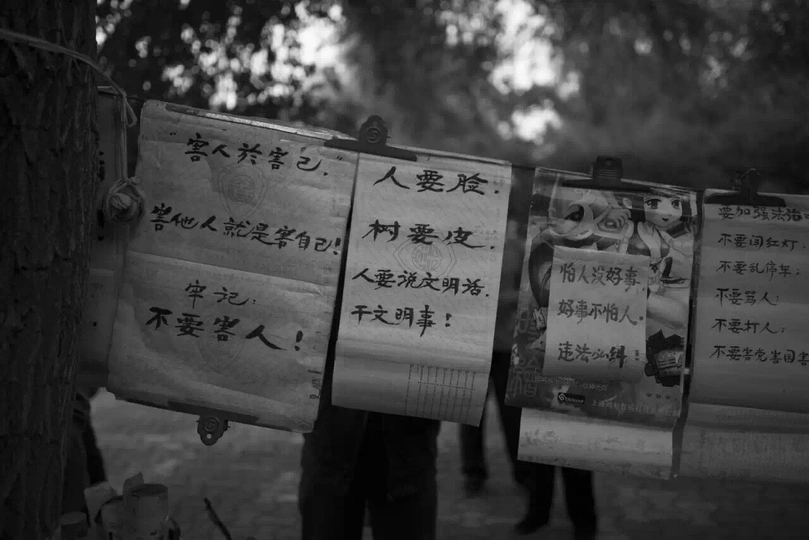 “害人於害己.”
害他人就是害自己!
牢记:
不要害人!
人要脸.
树要皮.
人要说文明话.
干文明事!
怕人没好事.
好事不怕人.
违法必纠!
要加强法治
不要闯红灯.
不要乱停车;
不要骂人;
不要打人;
不要害党害国害